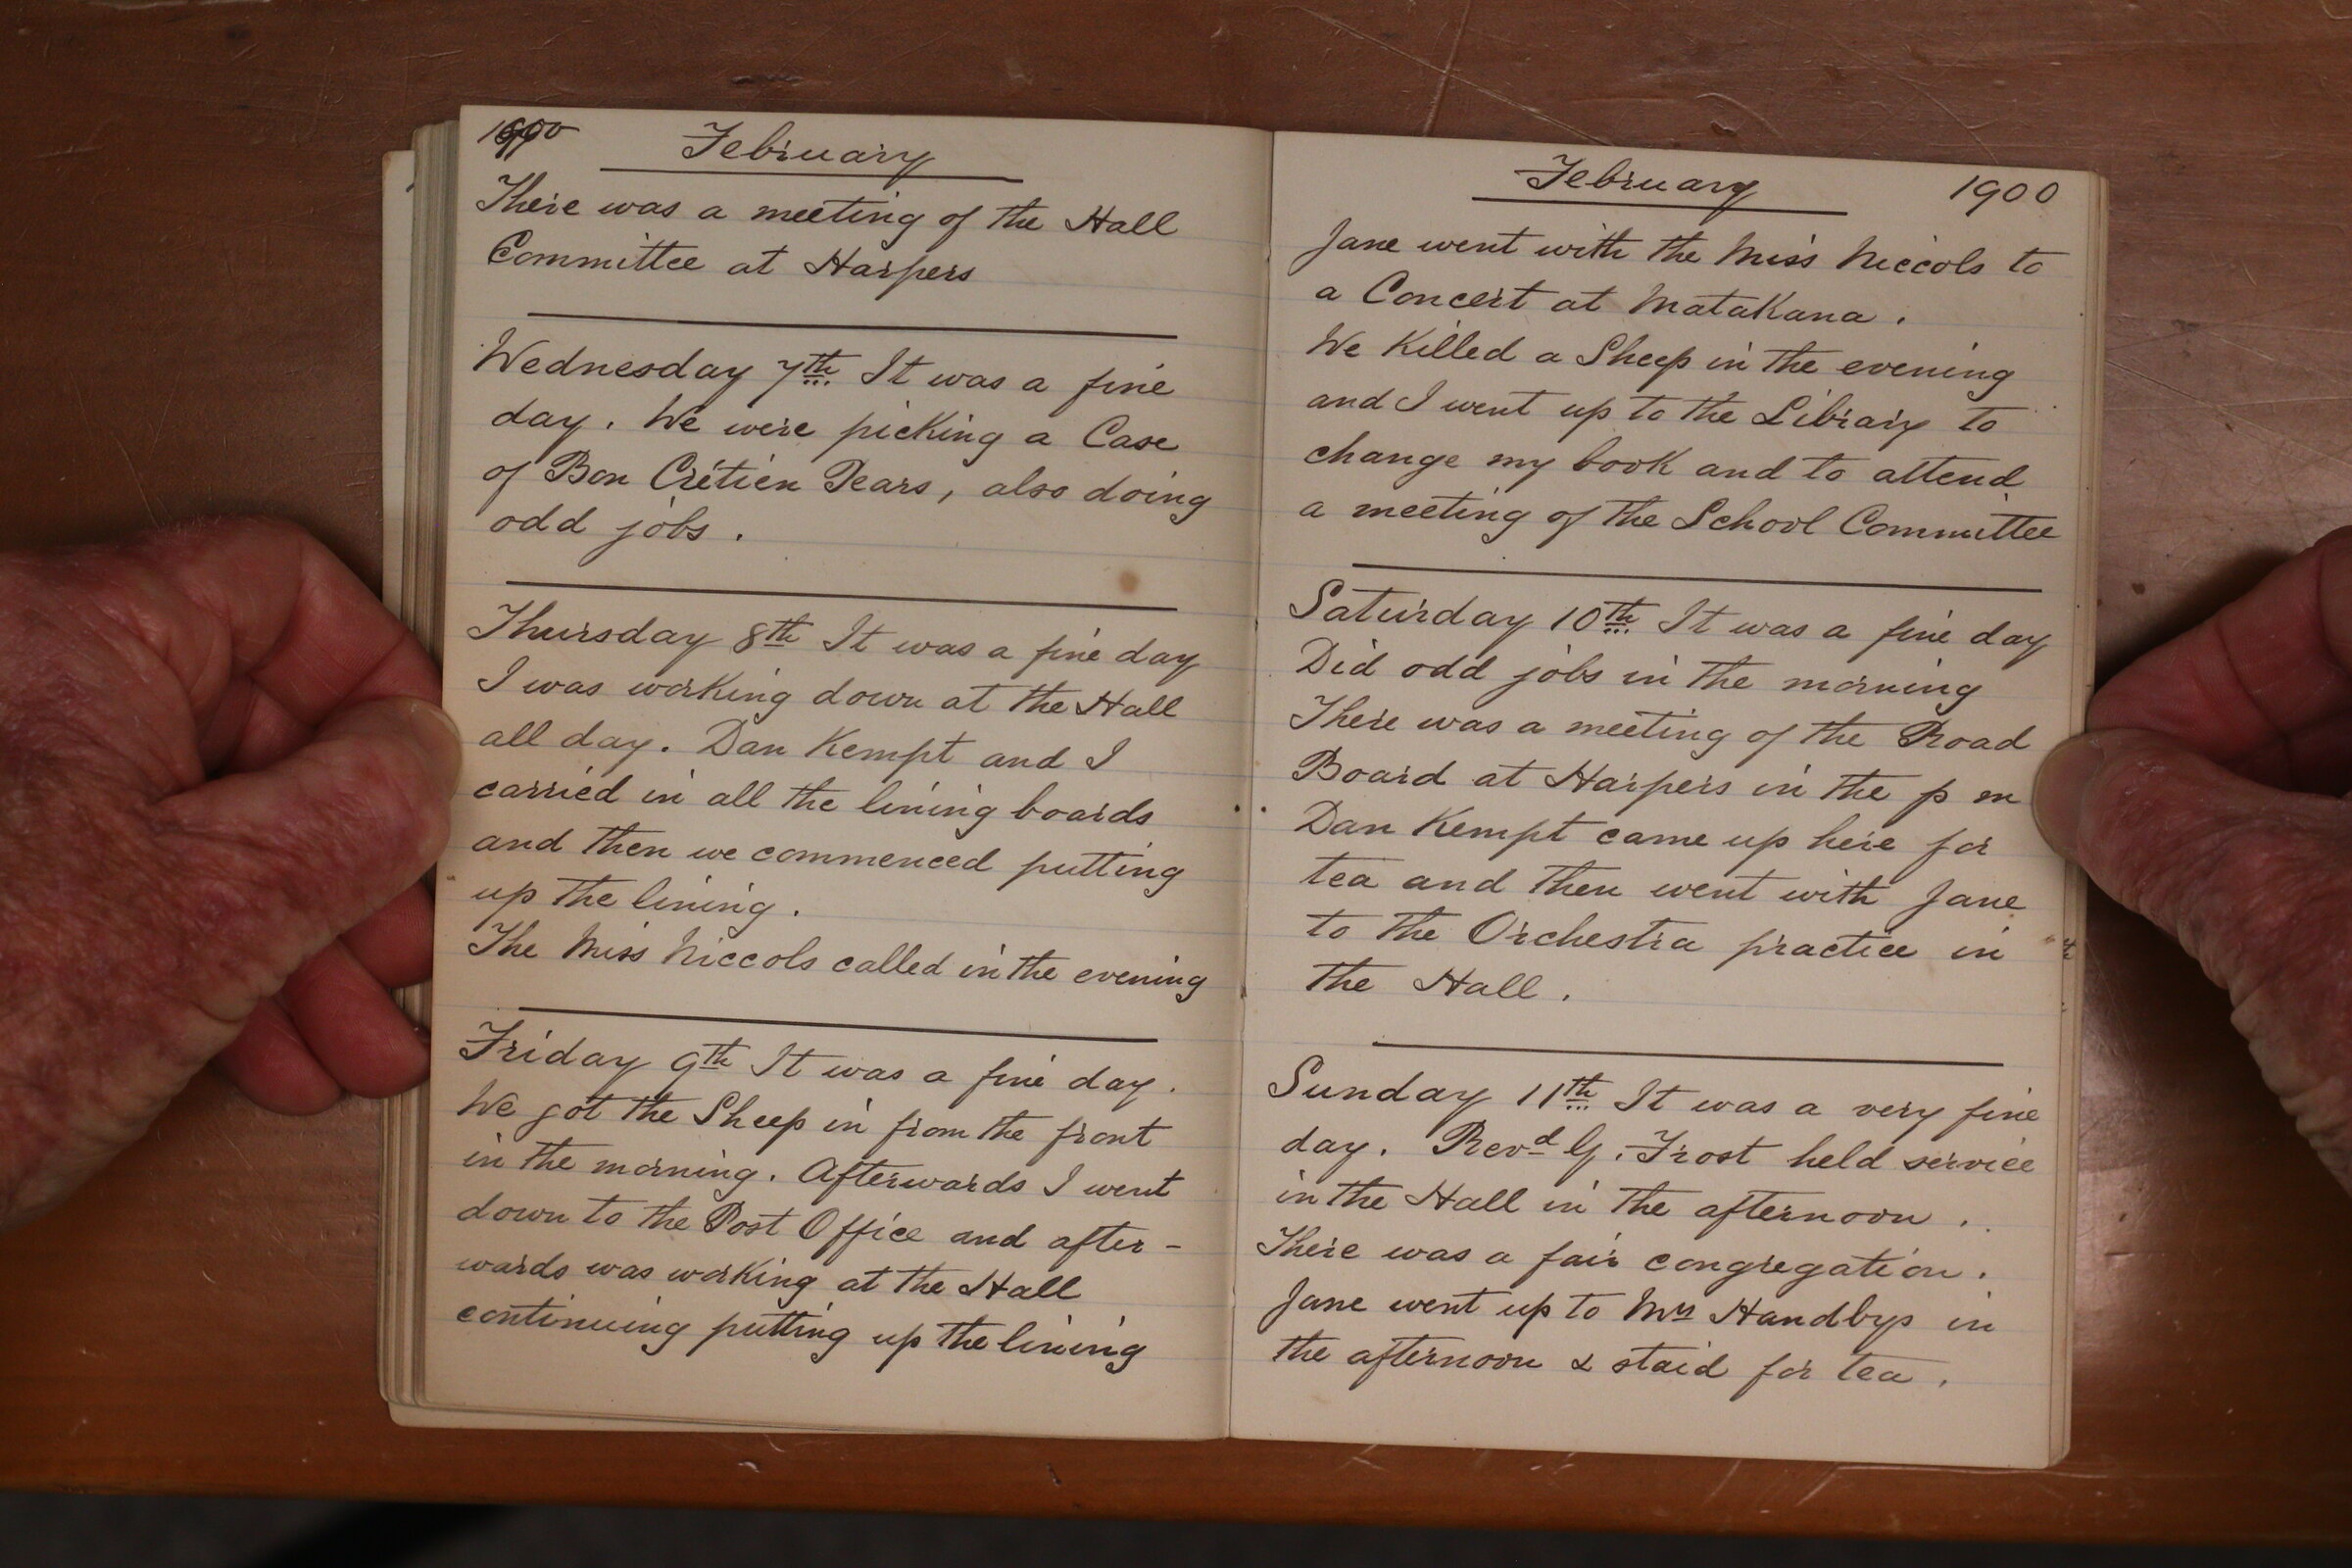 1900 February
There was a meeting of the Hall
Committee at Harpers
Wednesday 7th It was a fine
day. We were picking a Case
of Bon Crétien Pears, also doing
odd jobs.
Thursday 8th It was a fine day
I was working down at the Hall
all day. Dan Kempt and I
carried in all the lining boards
and then we commenced putting
up the lining.
The Miss Niccols called in the evening
Friday 9th It was a fine day.
We got the Sheep in from the front
in the morning. Afterwards I went
down to the Post Office and after-
wards was working at the Hall
continuing putting up the lining
February 1900
Jane went with the Miss Niccols to
a Concert at Matakana.
We Killed a Sheep in the evening
and I went up to the Library to
change my book and to attend
a meeting of the School Committee
Saturday 10th It was a fine day
Did odd jobs in the morning
There was a meeting of the Road
Board at Harpers in the p m
Dan Kempt came up here for
tea and then went with Jane
to the Orchestra practice in
the Hall.
Sunday 11th It was a very fine
day. Revd G. Frost held service
in the Hall in the afternoon.
There was a fair congregation.
Jane went up to Mrs Handbys in
the afternoon & staid for tea.